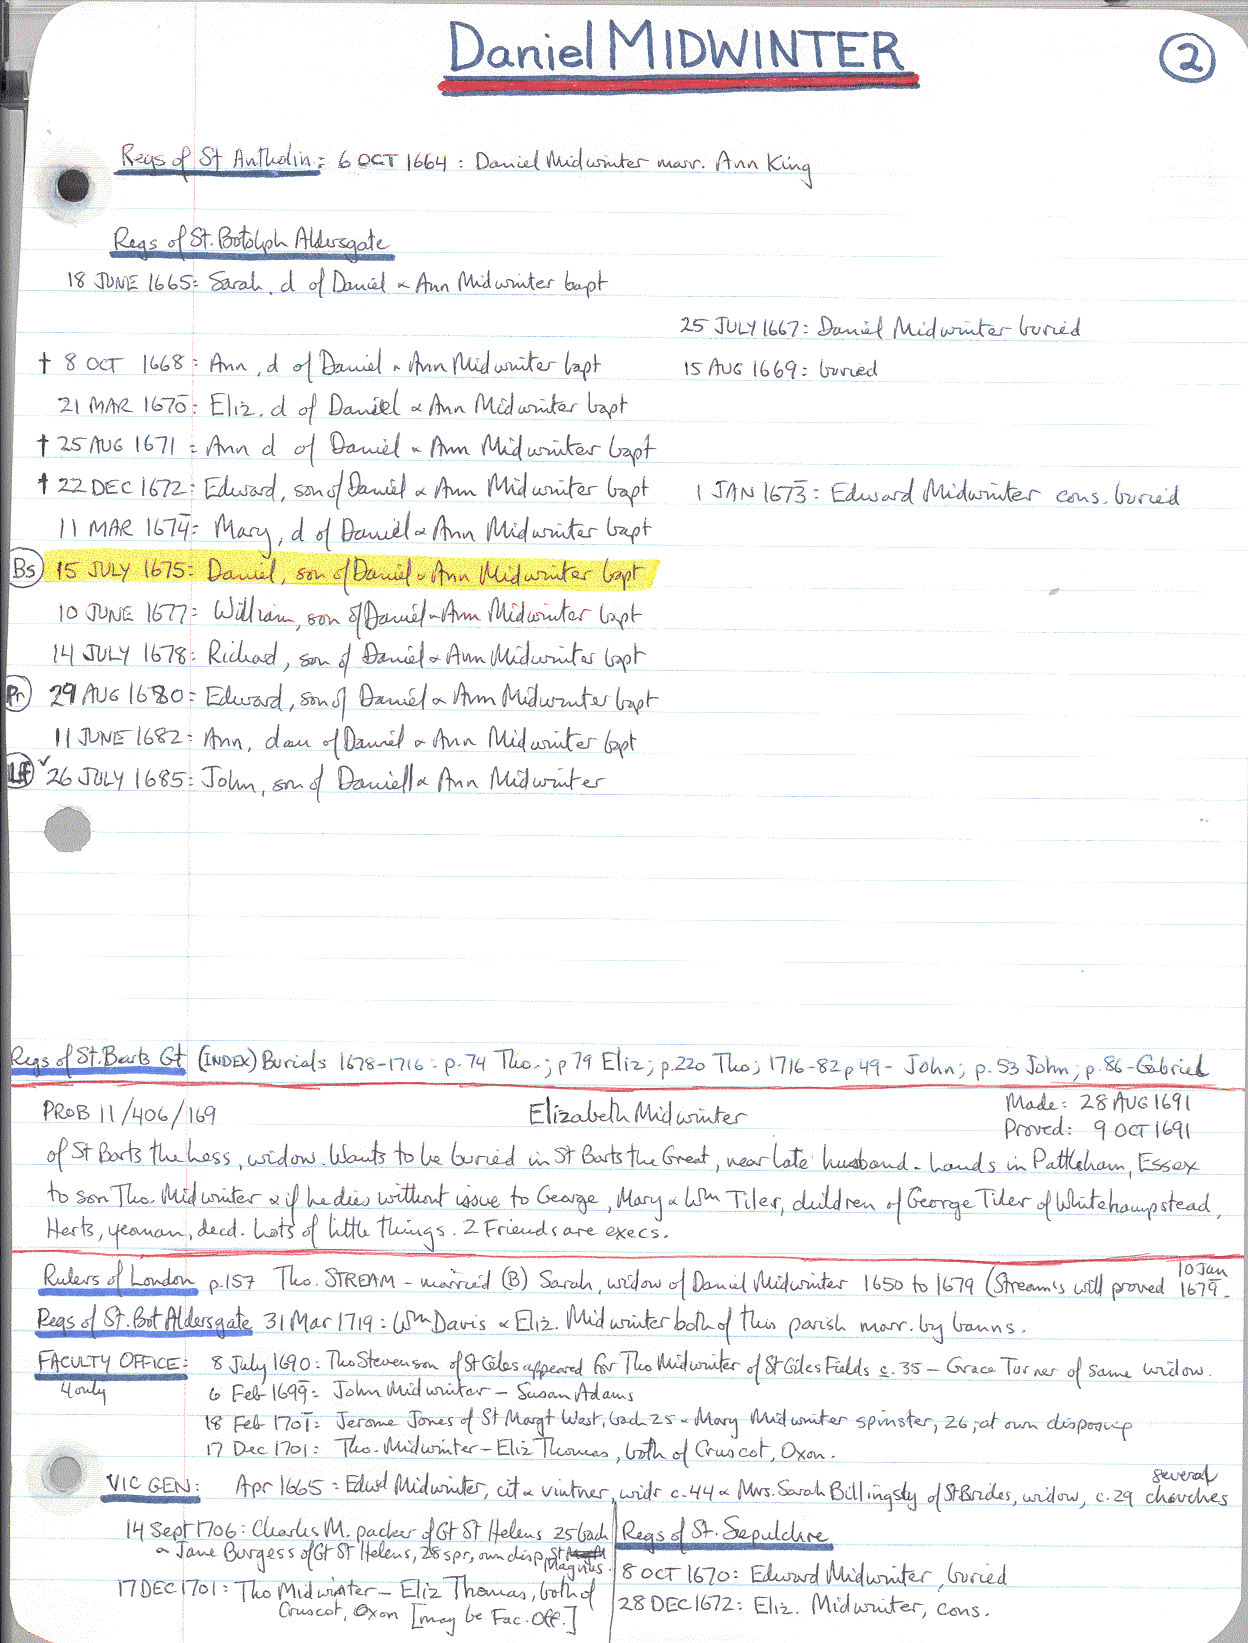 Daniel MIDWINTER
2
Regs of St Antholin: 6 OCT 1664: Daniel Midwinter marr. Ann King
Regs of St. Botolph Aldersgate
18 JUNE 1665: Sarah, d of Daniel & Ann Midwinter bapt
25 JULY 1667: Daniel Midwinter buried
† 8 OCT 1668: Ann, d of Daniel & Ann Midwinter bapt 15 AUG 1669: buried
21 MAR 1670: Eliz. d of Daniel & Ann Midwinter bapt
† 25 AUG 1671 = Ann d of Daniel & Ann Midwinter bapt
† 22 DEC 1672: Edward, son of Daniel & Ann Midwinter bapt 1 JAN 1673: Edward Midwinter cons. buried
11 MAR 1674: Mary, d of Daniel & Ann Midwinter bapt
Bs 15 JULY 1675: Daniel, son of Daniel & Ann Midwinter bapt
10 JUNE 1677: William, son of Daniel & Ann Midwinter bapt
14 JULY 1678: Richard, son of Daniel & Ann Midwinter bapt
Pr 29 AUG 1680: Edward, son of Daniel & Ann Midwinter bapt
11 JUNE 1682: Ann, dau of Daniel & Ann Midwinter bapt
✓ 26 JULY 1685: John, son of Daniell & Ann Midwinter
Regs of St. Barts Gt (INDEX) Burials 1678-1716: p.74 Tho.; p 79 Eliz; p.220 Tho; 1716-82 p 49 - John; p. 53 John; p. 86 - Gabriel
PROB 11/406/169 Elizabeth Midwinter Made: 28 AUG 1691
Proved: 9 OCT 1691
of St Barts the Less, widow. Wants to be buried in St Barts the Great, near late husband. Lands in Pattleham, Essex
to son Tho. Midwinter & if he dies without issue to George, Mary & Wm Tiler, children of George Tiler of Whitehampstead,
Herts, yeoman, decd. Lots of little things. 2 Friends are execs.
Rulers of London p.157 Tho. STREAM - married (B) Sarah, widow of Daniel Midwinter 1650 to 1679 (Stream's will proved 10 Jan 1679.
Regs of St. Bot Aldersgate 31 Mar 1719: Wm Davis & Eliz. Midwinter both of this parish marr. by banns.
FACULTY OFFICE: 8 July 1690: Tho Stevenson of St Giles appeared for Tho Midwinter of St Giles Fields c. 35 - Grace Turner of same widow.
4 only 6 Feb 1699: John Midwinter - Susan Adams
18 Feb 1701: Jerome Jones of St Margt West, bach 25 & Mary Midwinter spinster, 26, at own disposing
17 Dec 1701: Tho. Midwinter - Eliz Thomas, both of Cruscot, Oxon.
VIC GEN: Apr 1665: Edwd Midwinter, cit & vintner, widr c.44 & Mrs. Sarah Billingsly of St Brides, widow, c. 29 several churches
14 Sept 1706: Charles M. packer of Gt St Helens 25 bach
& Jane Burgess of Gt St Helens, 28 spr, own disp, St Magnus.
17 DEC 1701: Tho Midwinter - Eliz Thomas, both of
Cruscot, Oxon [may be Fac. Off.]
Regs of St. Sepulchre
8 OCT 1670: Edward Midwinter, buried
28 DEC 1672: Eliz. Midwinter, cons.